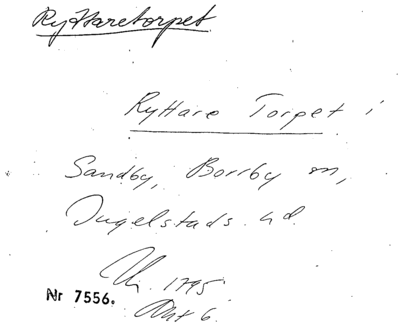 Ryttaretorpet
Ryttare Torpet i
Sandby, Borrby sn,
Ingelstads hd.
1795
Nr 7556.
Akt 6.